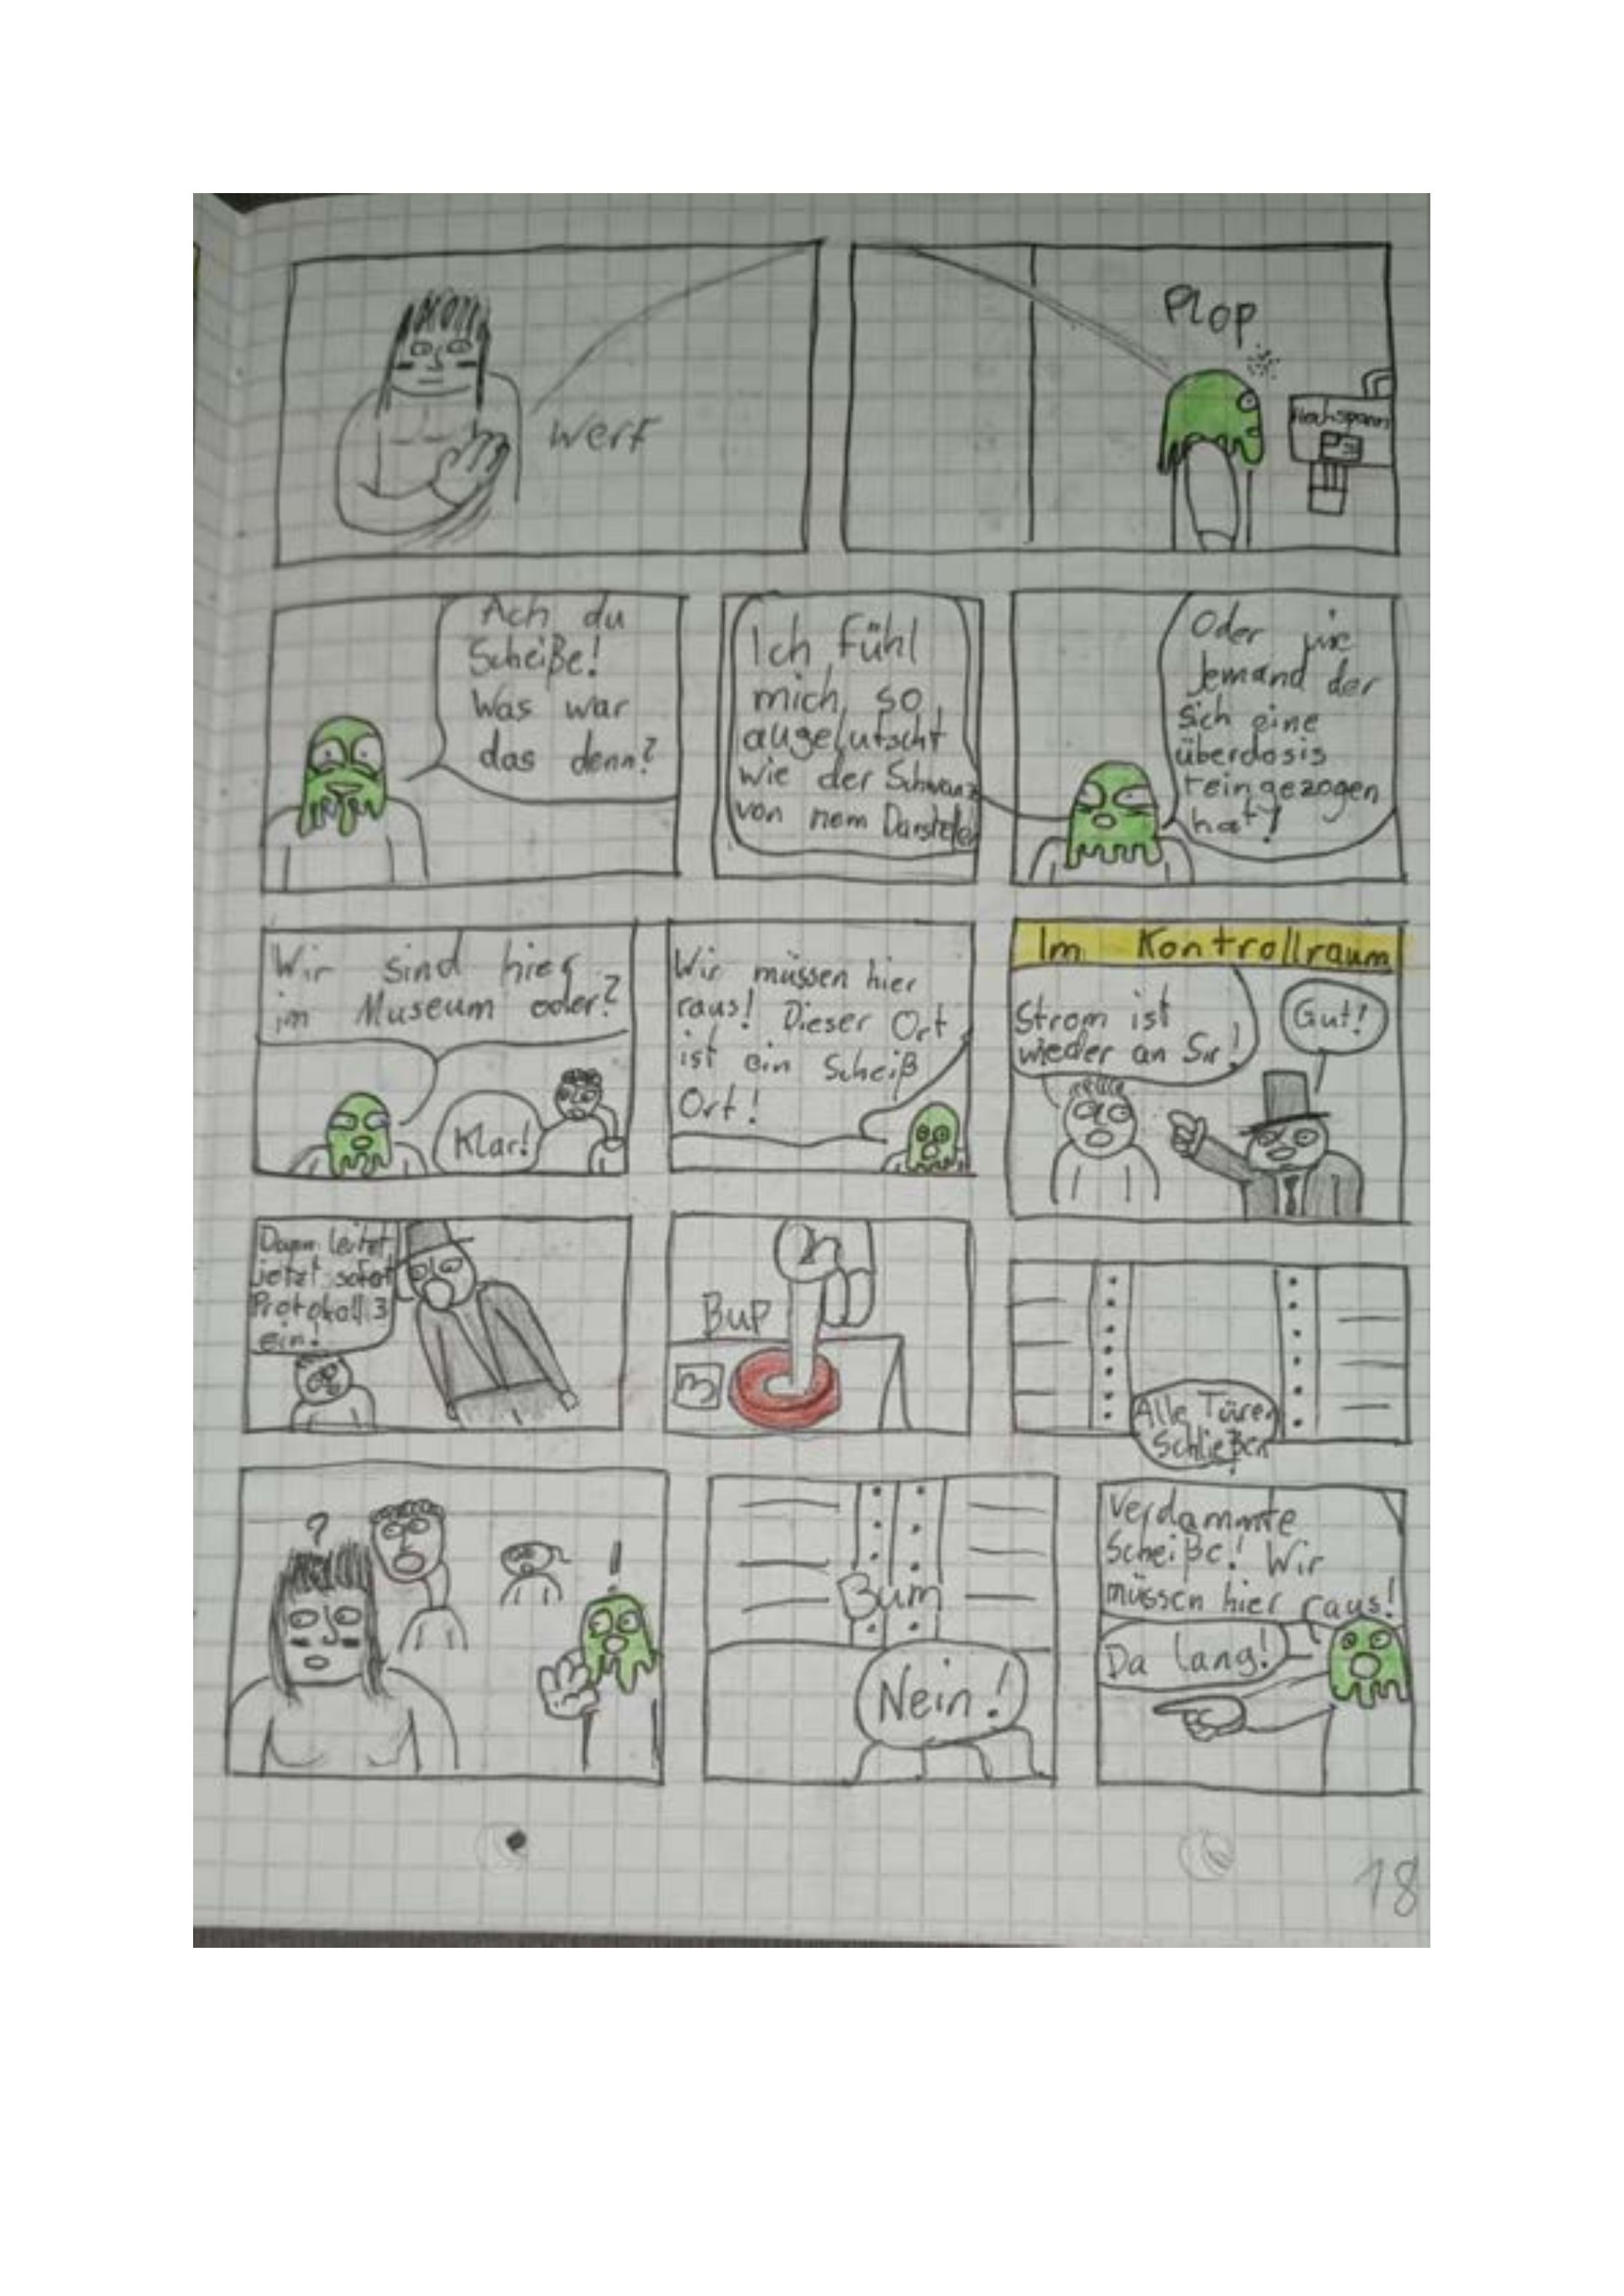 Werf
Plop
Hochspann
Ach du
Scheiße!
Was war
das denn?
Ich fühl
mich so
augelutscht
wie der Schwanz
von nem Darsteller
Oder wie
Jemand der
sich eine
überdosis
reingezogen
hat?
Wir sind hier
im Museum oder?
Klar!
Wir müssen hier
raus! Dieser Ort
ist ein Scheiß
Ort!
Im Kontrollraum
Strom ist
wieder an Sir!
Gut!
Dann leitet
jetzt sofort
Protokoll 3
ein!
Bup
3
Alle Türen
Schließen
?
!
Bum
Nein!
Verdammte
Scheiße! Wir
müssen hier raus!
Da lang!
18